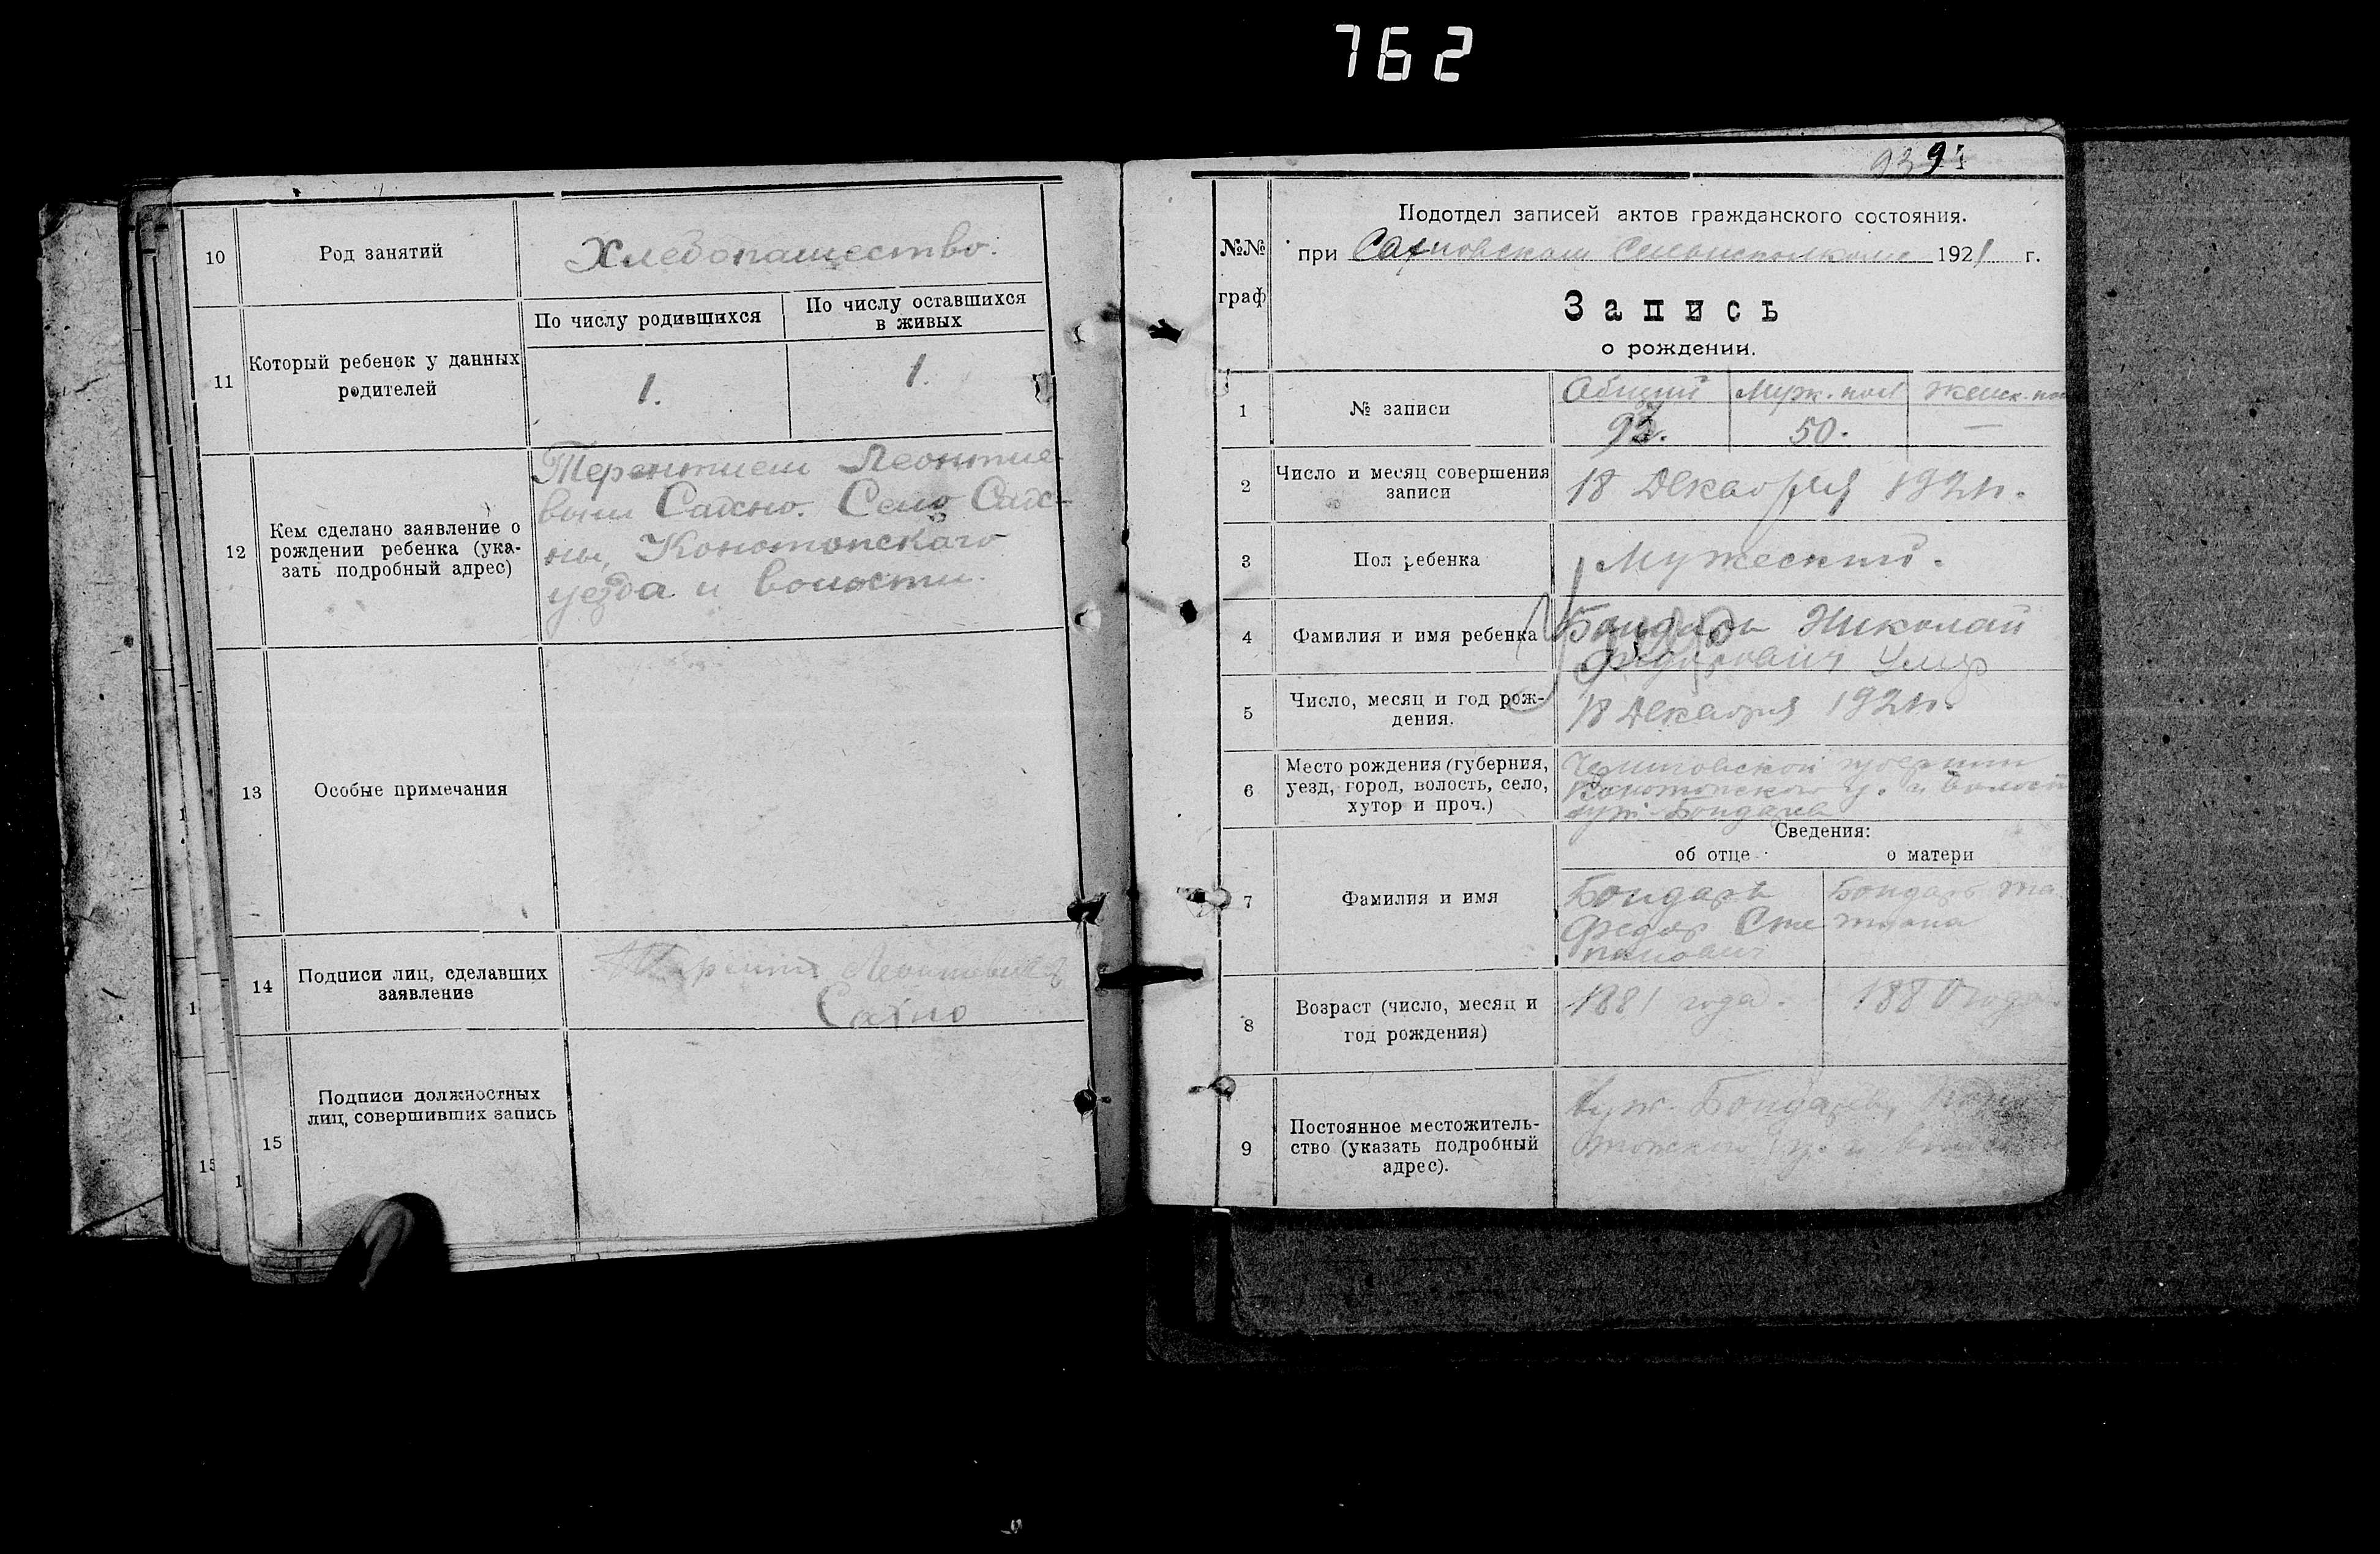 762
10
Род занятий
Хлебопашество.
11
Который ребенок у данных
родителей
По числу родившихся
По числу оставшихся
в живых
1.
1.
12
Кем сделано заявление о
рождении ребенка (ука-
зать подробный адрес)
Терентием Леонтие-
вым Сахно. Село Сах-
ны, Конотопскаго
уезда и волости.
13
Особые примечания
14
Подписи лиц, сделавших
заявление
Сахно
15
Подписи должностных
лиц, совершивших запись
93
№№
граф
Подотдел записей актов гражданского состояния.
при Сахновском Сельисполкоме 1921 г.
Запись
о рождении.
1
№ записи
Общий
Муж. пол
Женск. пол
93.
50.
—
2
Число и месяц совершения
записи
18 Декабря 1921 г.
3
Пол ребенка
Мужеский.
4
Фамилия и имя ребенка
Бондарь Николай
Федорович Умер
5
Число, месяц и год рож-
дения.
18 Декабря 1921 г.
6
Место рождения (губерния,
уезд, город, волость, село,
хутор и проч.)
Черниговской губернии
Конотопского у. и волости
хут. Бондарев
Сведения:
об отце
о матери
7
Фамилия и имя
Бондарь
Федор Сте
панович
Бондарь Та
тиана
8
Возраст (число, месяц и
год рождения)
1881 года.
1880 года
9
Постоянное местожитель-
ство (указать подробный
адрес).
хут. Бондарев, Кон
отопского у. и